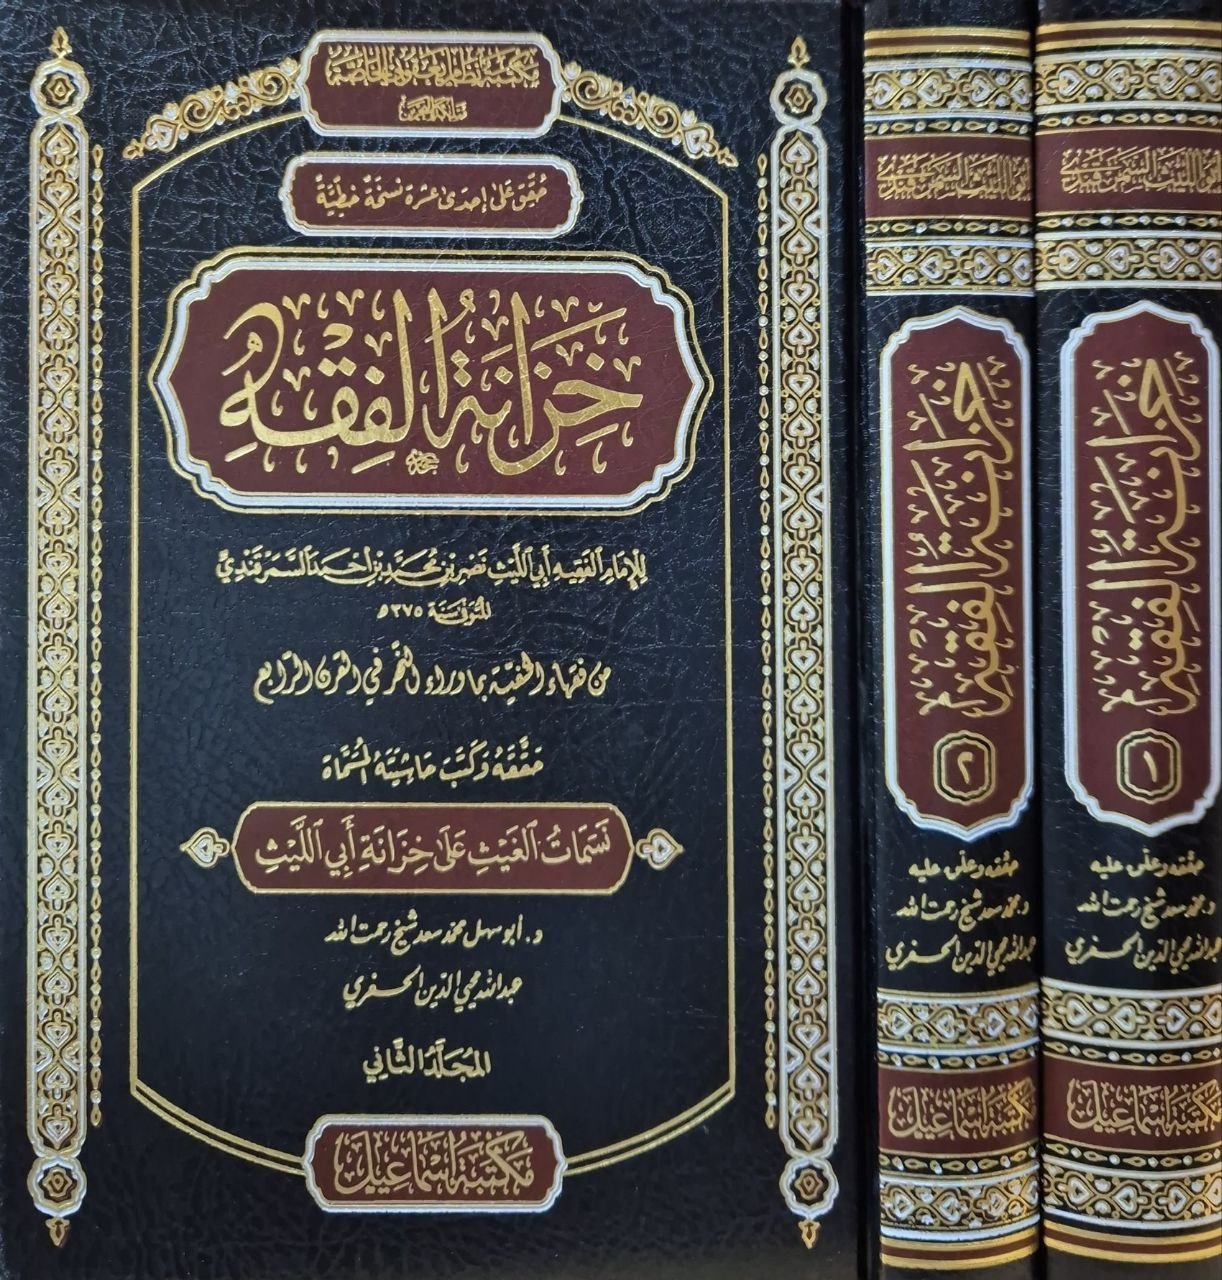 مكتبة نظام يعقوبي الخاصة
مملكة البحرين
محقق على إحدى عشرة نسخة خطية
خِزَانَةُ الفِقْهِ
للإمام الفقيه أبي الليث نصر بن محمد بن أحمد السمرقندي
المتوفى سنة ٣٧٥ هـ
من فقهاء الحنفية بما وراء النهر في القرن الرابع
حققه وكتب حاشيته المسماة
نَسَمَاتُ الغَيْثِ عَلَى خِزَانَةِ أَبِي اللَّيْثِ
د. أبو سهل محمد سعد شيخ رحمت الله
عبد الله محيي الدين الحفري
المُجَلَّدُ الثَّانِي
مكتبة إسماعيل
أبو الليث السمرقندي
خزانة الفقه
٢
حققه وعلق عليه
د. محمد سعد شيخ رحمت الله
عبد الله محيي الدين الحفري
مكتبة إسماعيل
أبو الليث السمرقندي
خزانة الفقه
١
حققه وعلق عليه
د. محمد سعد شيخ رحمت الله
عبد الله محيي الدين الحفري
مكتبة إسماعيل